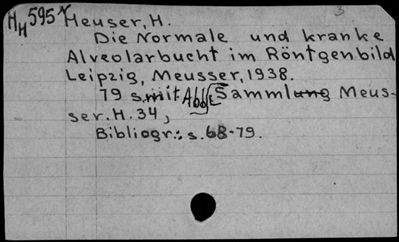 3
HH 595 Heuser, H.
Die Normale und kranke
Alveolarbucht im Röntgenbild
Leipzig, Meusser, 1938.
79 s. mit Abb. Sammlung Meus-
ser. H. 34,
Bibliogr.: s. 68-79.